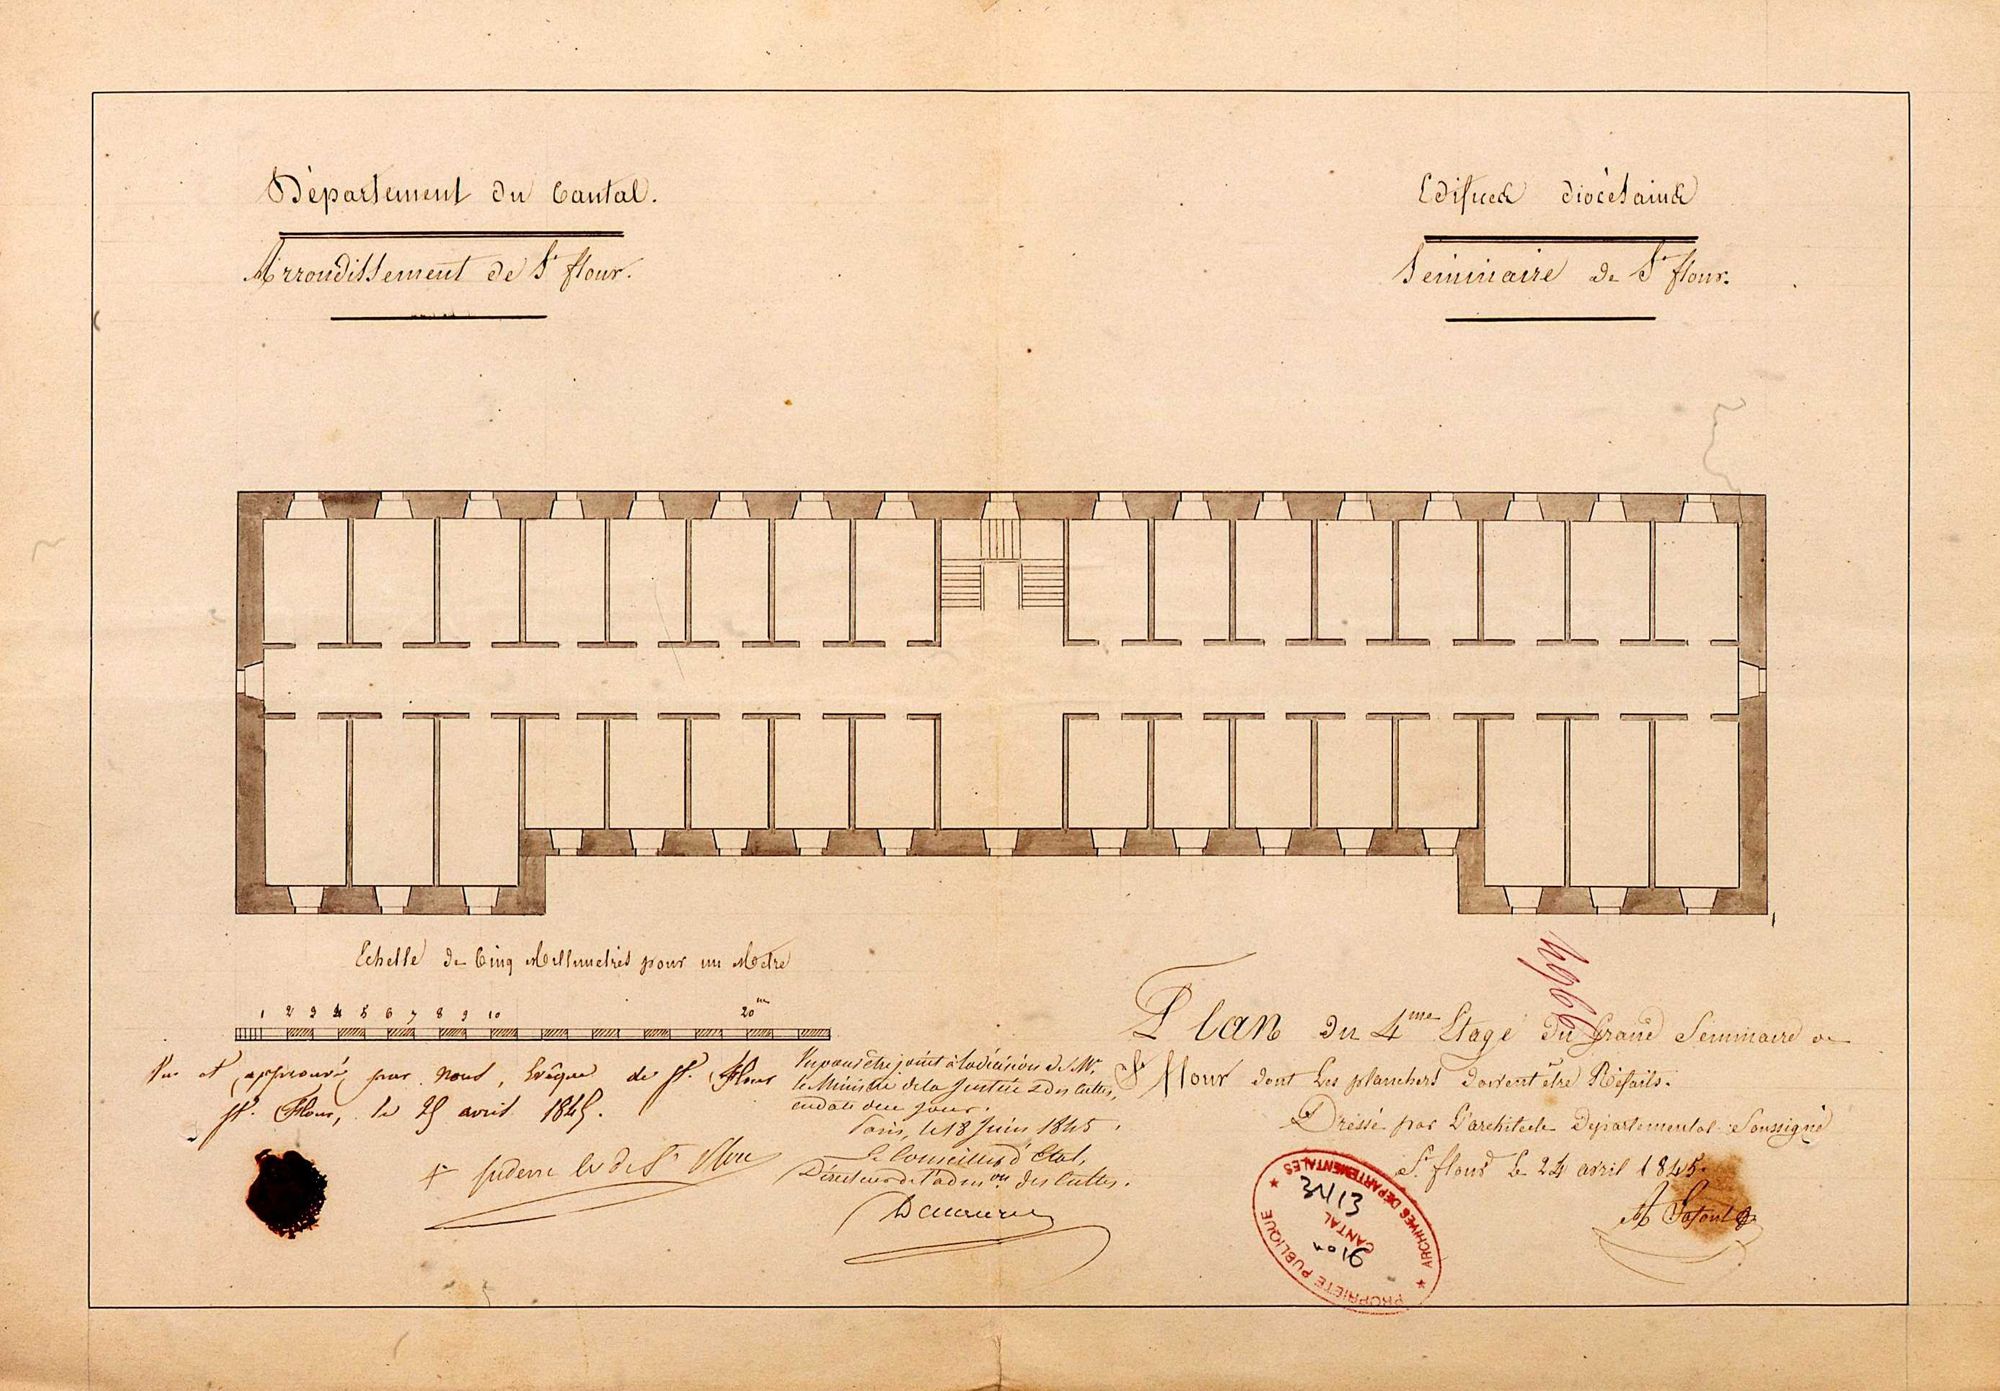 Département du Cantal.
Arrondissement de St flour.
Edifices diocésains
Séminaire de St flour.
Echelle de Cinq Millimetres pour un Mètre
1 2 3 4 5 6 7 8 9 10 20m
Vu et approuvé par nous, Evêque de St. Flour
St. Flour, le 25 avril 1845.
de St Flour
Vu pour être joint à la décision de Mr
le Ministre de la Justice & des Cultes,
en date de ce jour.
Paris, le 18 Juin 1845.
Le Conseiller d'Etat,
Directeur de l'admon des Cultes.
Plan du 4me Etage du Grand Séminaire de
St Flour dont Les planchers doivent être Refaits.
Dressé par L'architecte Départemental Soussigné
St. flour Le 24 avril 1845.
ARCHIVES DÉPARTEMENTALES
CANTAL
PROPRIÉTÉ PUBLIQUE